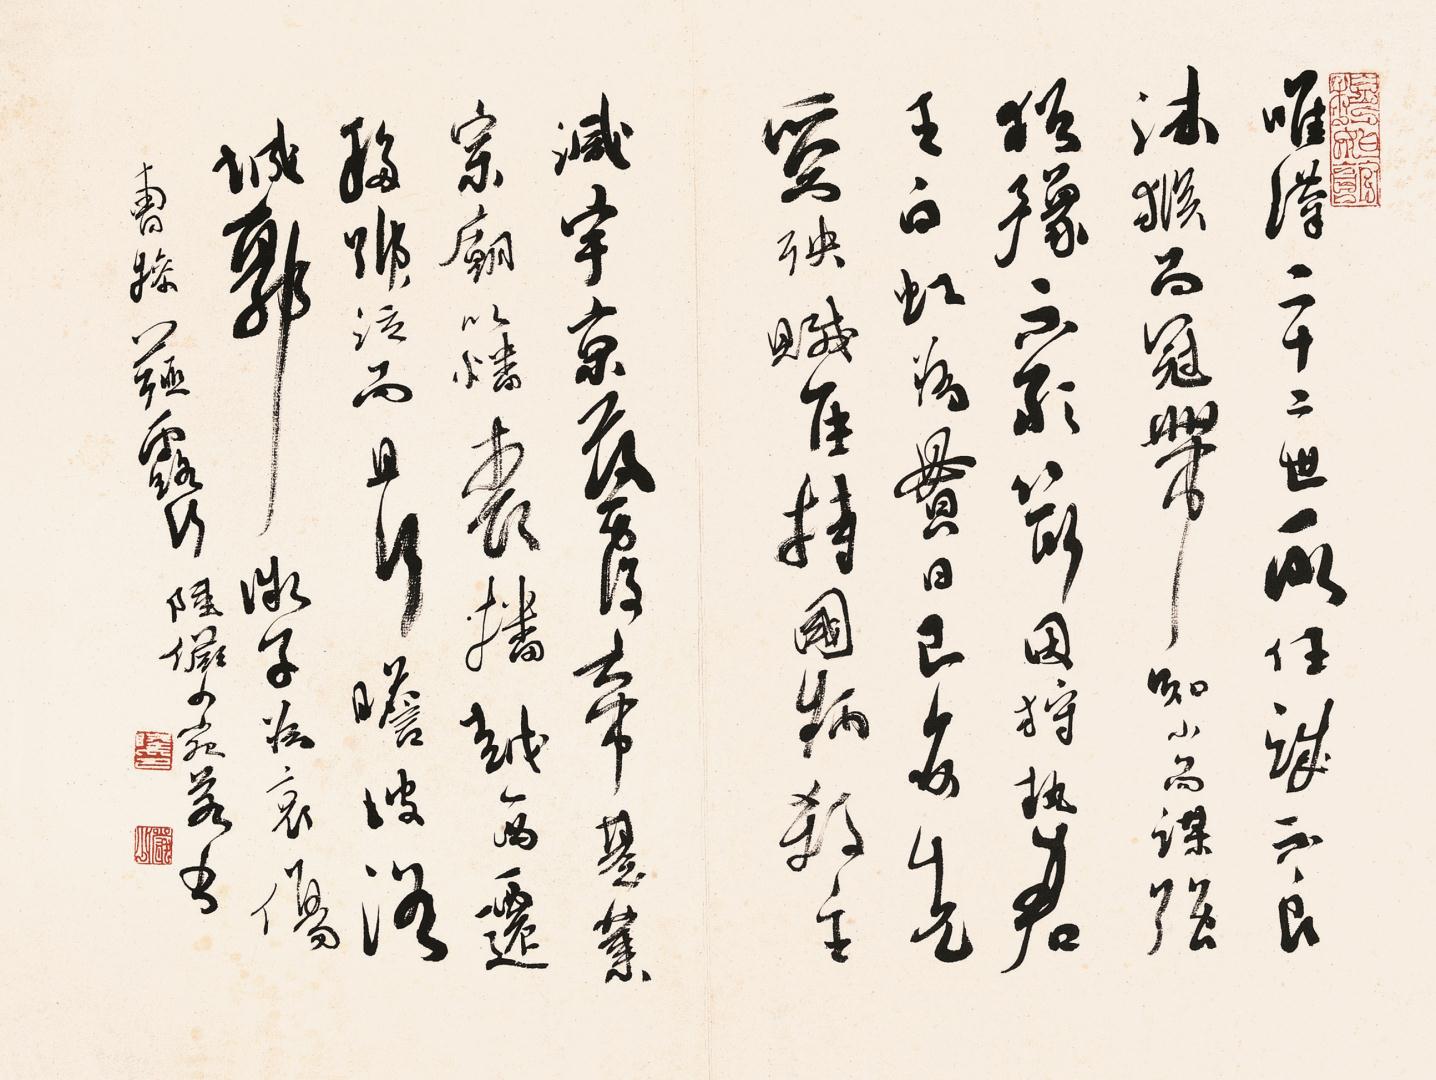 唯漢二十二世所任誠不良
沐猴而冠帶知小而謀強
猶豫不敢斷因狩執君
王白虹為貫日己亦先
受殃賊臣持國柄殺主
滅宇京蕩覆帝基業
宗廟以燔喪播越西遷
移號泣而且行瞻彼洛
城郭微子為哀傷
曹操薤露行 陸儼少宛若書